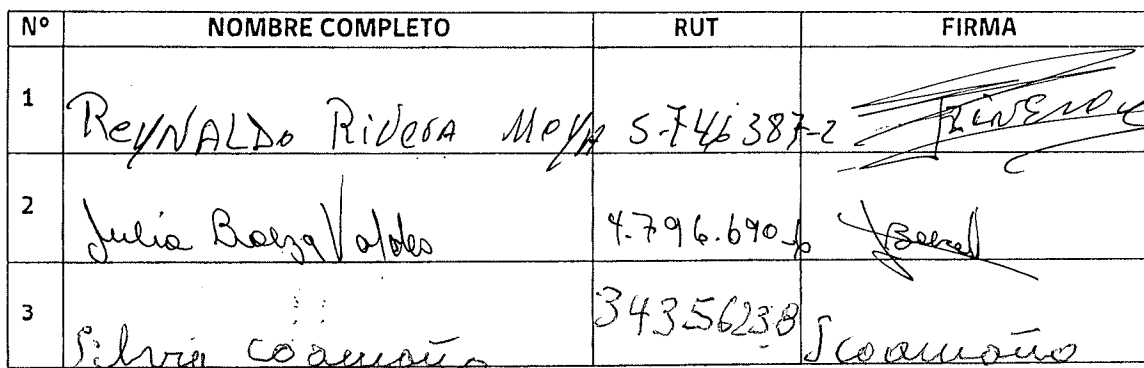 Nº NOMBRE COMPLETO RUT FIRMA
1 Reynaldo Rivera Moya 5.746387-2 Rivera
2 Julia Baeza Valdes 4.796.690
3 Silvia Caamaño 34356238 Scaamaño